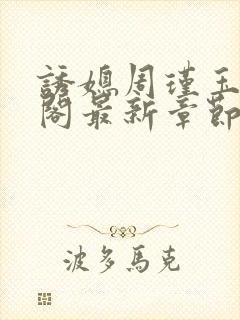 誘媳周瑾玉
閣最新章節
波多馬克